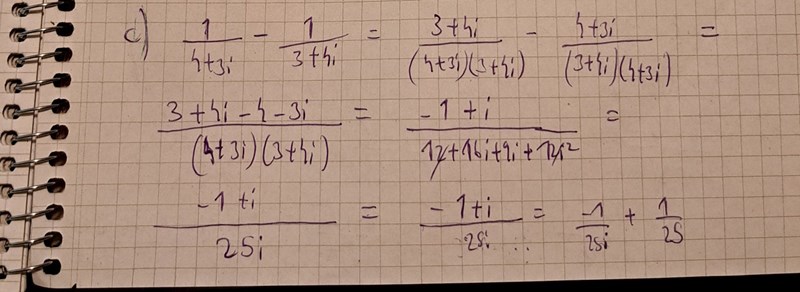 c) 1/(4+3i) - 1/(3+4i) = (3+4i)/((4+3i)(3+4i)) - (4+3i)/((3+4i)(4+3i)) =
(3+4i-4-3i)/((4+3i)(3+4i)) = (-1+i)/(12+16i+9i+12i²) =
(-1+i)/(25i) = (-1+i)/(25i) = -1/(25i) + 1/25